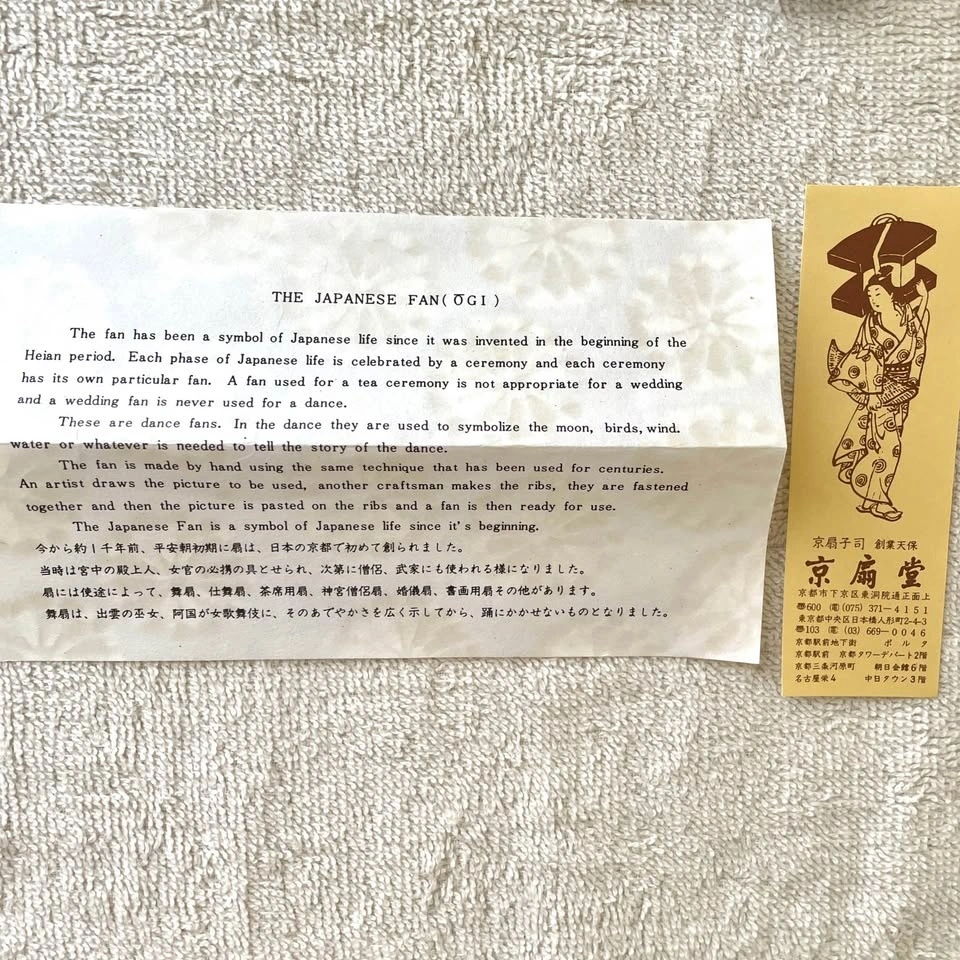 THE JAPANESE FAN(ŌGI)
The fan has been a symbol of Japanese life since it was invented in the beginning of the
Heian period. Each phase of Japanese life is celebrated by a ceremony and each ceremony
has its own particular fan. A fan used for a tea ceremony is not appropriate for a wedding
and a wedding fan is never used for a dance.
These are dance fans. In the dance they are used to symbolize the moon, birds, wind.
water or whatever is needed to tell the story of the dance.
The fan is made by hand using the same technique that has been used for centuries.
An artist draws the picture to be used, another craftsman makes the ribs, they are fastened
together and then the picture is pasted on the ribs and a fan is then ready for use.
The Japanese Fan is a symbol of Japanese life since it's beginning.
今から約1千年前、平安朝初期に扇は、日本の京都で初めて創られました。
当時は宮中の殿上人、女官の必携の具とせられ、次第に僧侶、武家にも使われる様になりました。
扇には使途によって、舞扇、仕舞扇、茶席用扇、神宮僧侶扇、婚儀扇、書画用扇その他があります。
舞扇は、出雲の巫女、阿国が女歌舞伎に、そのあでやかさを広く示してから、踊にかかせないものとなりました。
京扇子司 創業天保
京扇堂
京都市下京区東洞院通正面上
〠600 ㊡(075) 371-4151
東京都中央区日本橋人形町2-4-3
〠103 ㊡(03) 669-0046
京都駅前地下街 ポルタ
京都駅前 京都タワーデパート2階
京都三条河原町 朝日会館6階
名古屋栄4 中日タウン3階